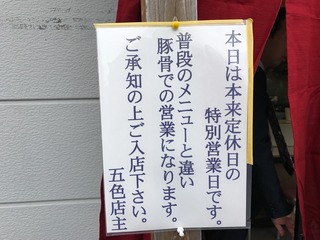 本日は本来定休日の
特別営業日です。
普段のメニューと違い
豚骨での営業になります。
ご承知の上ご入店下さい。
五色店主